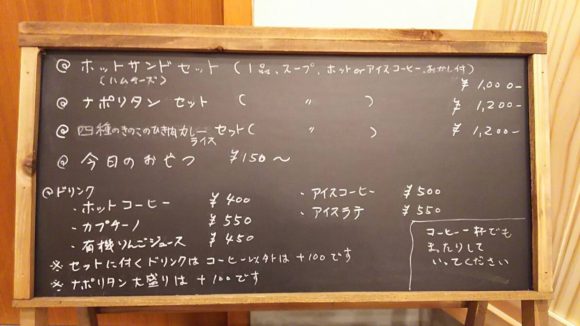 @ ホットサンドセット (1品、スープ、ホットorアイスコーヒー、おかし付)
(ハムチーズ) ¥1,000-
@ ナポリタン セット ( 〃 ) ¥1,200-
@ 四種のきのこのひき肉カレーライス セット ( 〃 ) ¥1,200-
@ 今日のおやつ ¥150〜
@ドリンク
・ホットコーヒー ¥400 ・アイスコーヒー ¥500
・カプチーノ ¥550 ・アイスラテ ¥550
・有機りんごジュース ¥450
※ セットに付くドリンクはコーヒー以外は +100です
※ ナポリタン大盛りは +100です
コーヒー一杯でも
まったりして
いってください